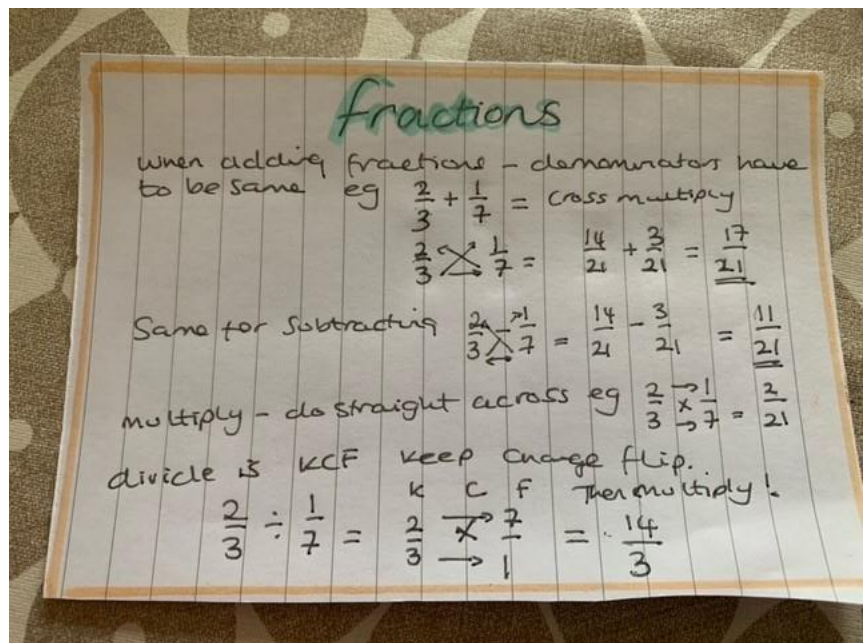 fractions
when adding fractions - denominators have
to be same eg 2/3 + 1/7 = cross multiply
2/3 × 1/7 = 14/21 + 3/21 = 17/21
Same for subtracting 2/3 - 1/7 = 14/21 - 3/21 = 11/21
multiply - do straight across eg 2/3 × 1/7 = 2/21
divide is KCF keep change flip.
K C F Then multiply!
2/3 ÷ 1/7 = 2/3 × 7/1 = 14/3